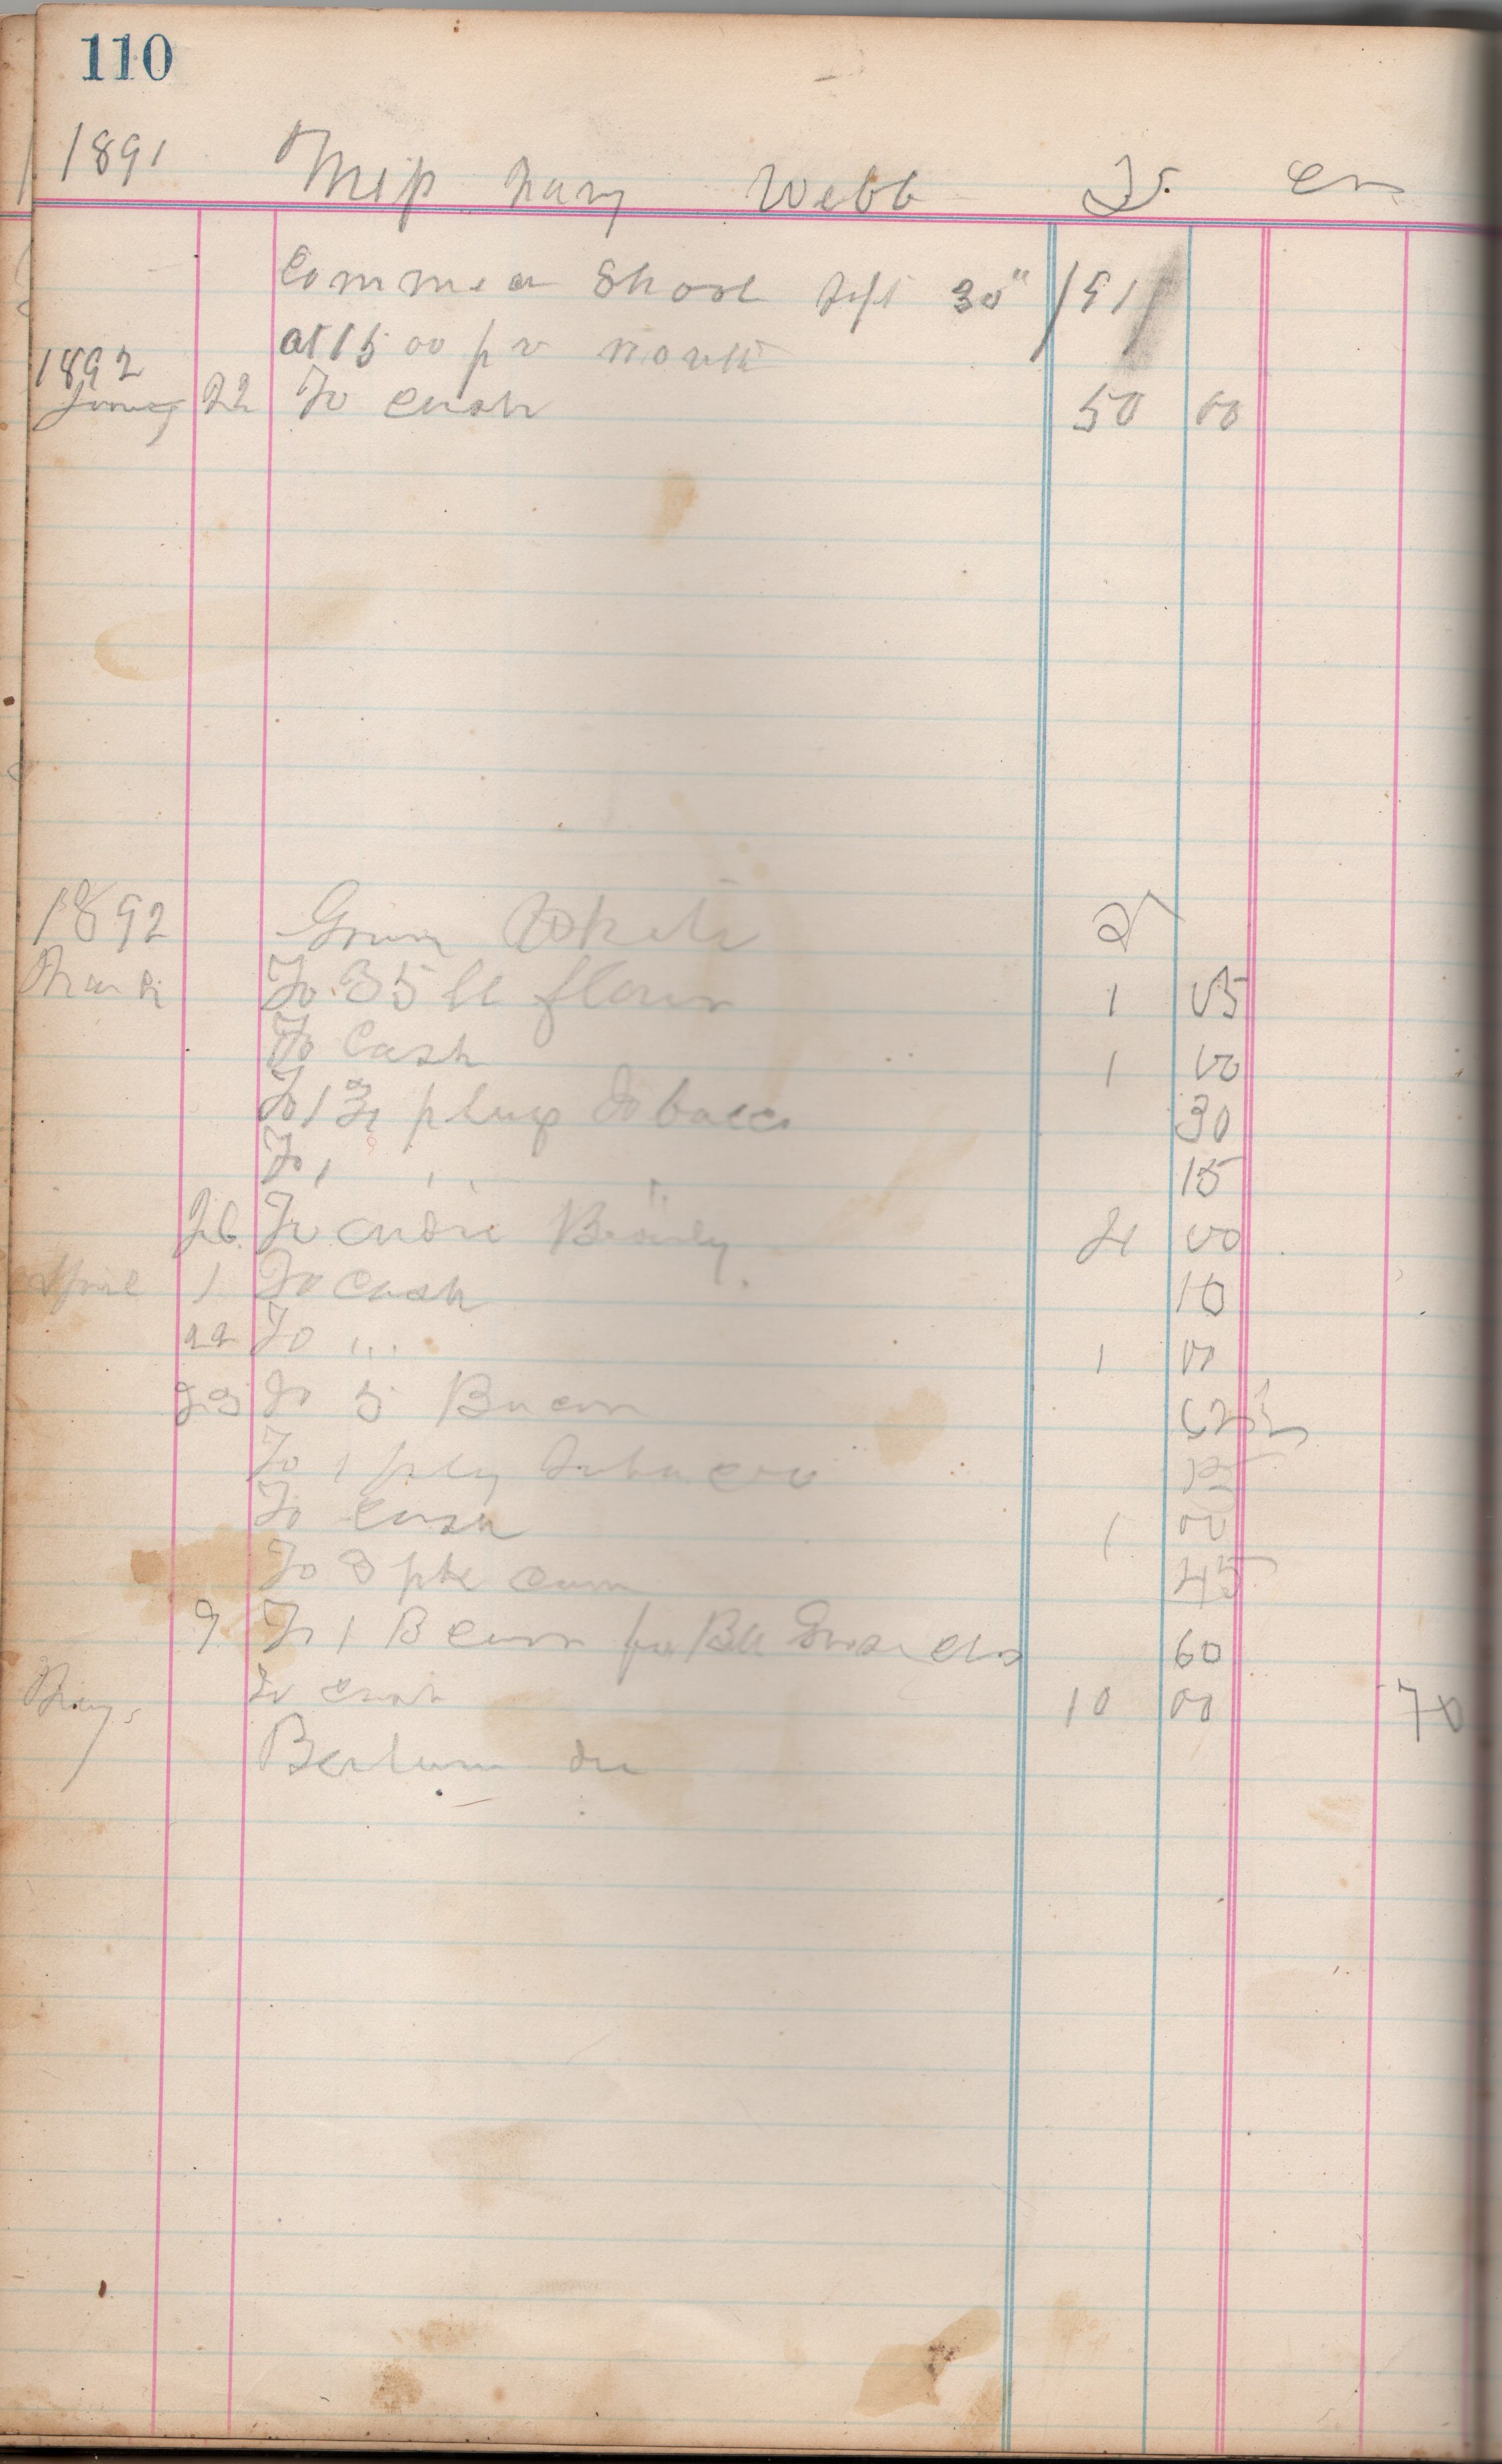 110
1891 Miss Mary Webb Dr. Cr
Commen Shool Sept 30" /91
at 15 00 pr month
1892
January 22 To cash 50 00
1892 Green White Dr
March To 35 lb flour 1 05
To Cash 1 00
To 1 plug Tobacco 30
To 1 " " 15
26 To order 4 00
April 1 To cash 10
22 To " 1 00
23 To 5 Bacon 62½
To 1 plug Tobacco 15
To cash 1 00
To 3 pk corn 45
9 To 1 B corn 60
May 5 To cash 10 00 70
due